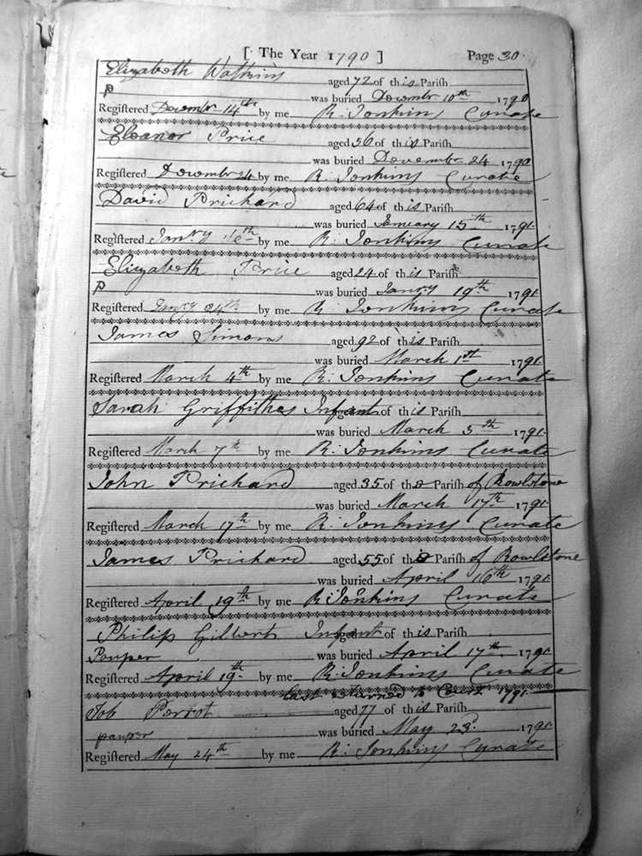 [ The Year 1790 ] Page 30.
Elizabeth Watkins aged 72 of this Parish
P was buried Decembr 10th 1790
Registered Decembr 14th by me R. Jenkins Curate
Eleanor Price aged 56 of this Parish
was buried December 24 1790
Registered Decembr 24 by me R. Jenkins Curate
David Prichard aged 64 of this Parish
was buried January 15th 1791
Registered Janry 16th by me R. Jenkins Curate
Elizabeth Price aged 24 of this Parish
P was buried Janry 19th 1791
Registered Janry 24th by me R. Jenkins Curate
James Simons aged 92 of this Parish
was buried March 1st 1791
Registered March 4th by me R. Jenkins Curate
Sarah Griffithes Infant of this Parish
was buried March 5th 1791
Registered March 7th by me R. Jenkins Curate
John Prichard aged 35 of the Parish of Rowlstone
was buried March 17th 1791
Registered March 17th by me R. Jenkins Curate
James Prichard aged 55 of the Parish of Rowlstone
was buried April 16th 1791
Registered April 19th by me R Jenkins Curate
Philip Gilbert Infant of this Parish
Pauper was buried April 17th 1791
Registered April 19th by me R. Jenkins Curate
last returned to Court 1791
Job Perrot aged 77 of this Parish
pauper was buried May 23d 1791
Registered May 24th by me R. Jenkins Curate